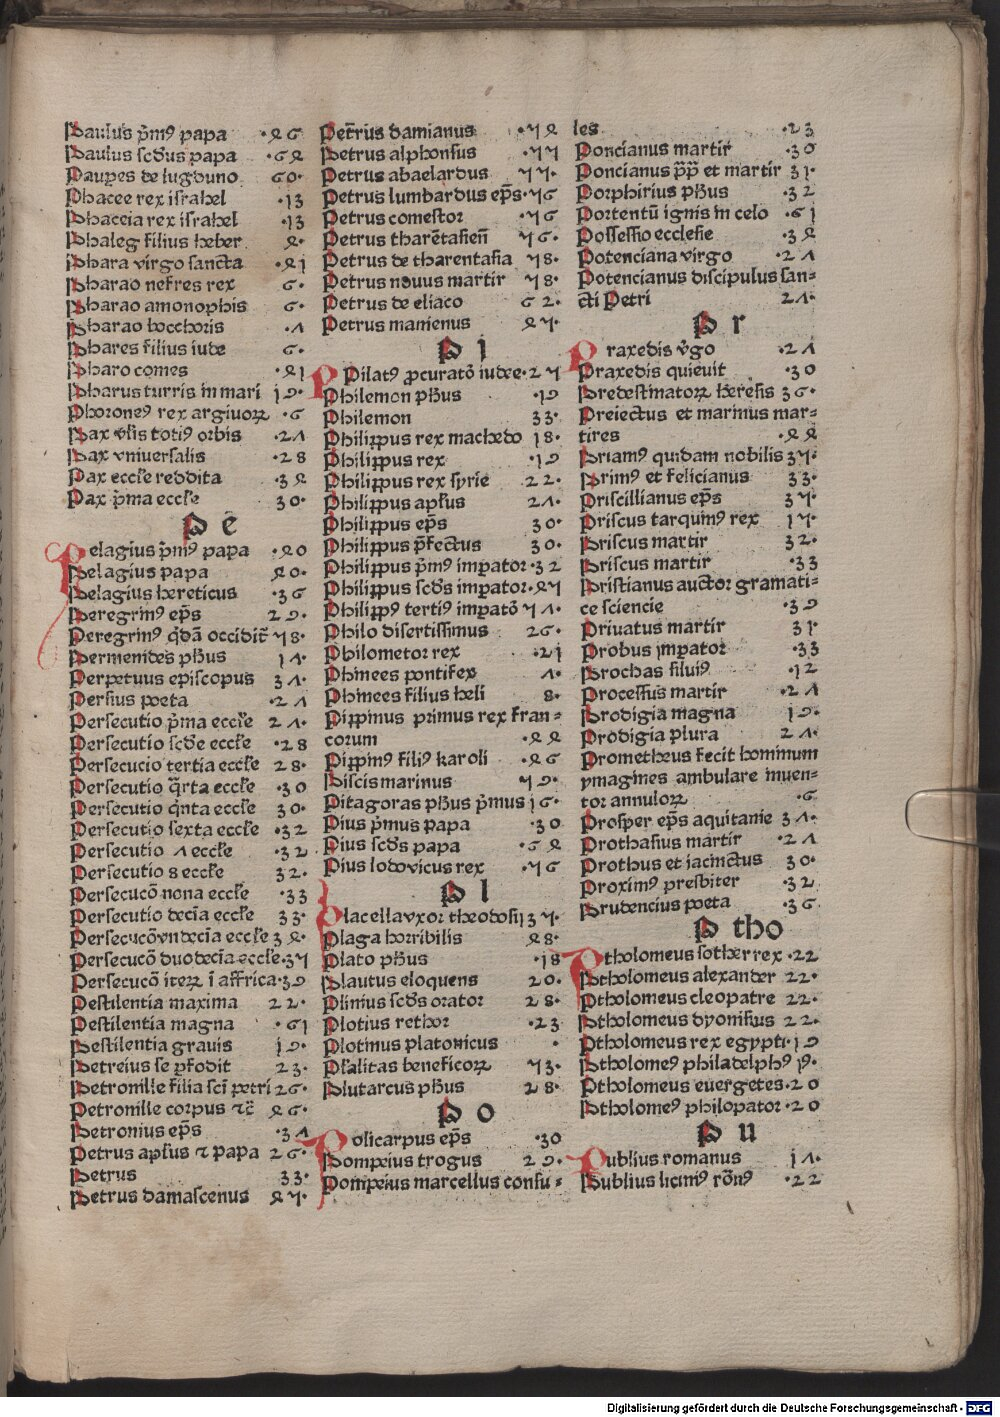 Paulus p̄mꝰ papa ·46
Paulus scd̄us papa ·64
Paupes de lugduno 60·
Phacee rex israhel ·13
Phaceia rex israhel ·13
Phaleg filius heber 4·
Phara virgo sancta ·41
Pharao nefres rex 6·
Pharao amonophis 6·
Pharao bocchoris ·7
Phares filius iude 6·
Pharo comes ·41
Pharus turris in mari 19·
Phoroneꝰ rex argiuoꝝ ·6
Pax vl̄is totiꝰ orbis ·27
Pax vniuersalis ·28
Pax eccl̄e reddita ·34
Pax p̄ma eccl̄e 30·
P e
Pelagius p̄mꝰ papa ·40
Pelagius papa 40·
Pelagius hereticus ·36
Peregrinꝰ ep̄s 29·
Peregrinꝰ q̄dā occidit̄ 58·
Permenides ph̄us 17·
Perpetuus episcopus 37·
Persius poeta ·27
Persecutio p̄ma eccl̄e 27·
Persecutio scd̄e eccl̄e ·28
Persecucio tertia eccl̄e 28·
Persecutio q̄rta eccl̄e ·30
Persecutio q̄nta eccl̄e 30·
Persecutio sexta eccl̄e ·32
Persecutio 7 eccl̄e ·32
Persecutio 8 eccl̄e 32·
Persecucō nona eccl̄e ·33
Persecutio decīa eccl̄e 33·
Persecucō vndecīa eccl̄e 34·
Persecucō duodecīa eccl̄e ·35
Persecucō iteꝝ ī affrica ·39
Pestilentia maxima 22·
Pestilentia magna ·61
Pestilentia grauis 19·
Petreius se p̄fodit 23·
Petronille filia scī petri 26·
Petronille corpus ⁊c̄ 46·
Petronius ep̄s ·37
Petrus apl̄us ⁊ papa 26·
Petrus 33·
Petrus damascenus 45·
Petrus damianus ·54
Petrus alphonsus ·55
Petrus abaelardus 55·
Petrus lumbardus ep̄s ·56
Petrus comestor ·56
Petrus tharētasien̄ 56·
Petrus de tharentasia 58·
Petrus nouus martir 58·
Petrus de eliaco 62·
Petrus manienus 45·
P i
Pilatꝰ ꝓcuratō iudee ·25
Philemon ph̄us ·19
Philemon 33·
Philippus rex machedo 18·
Philippus rex ·19
Philippus rex syrie 22·
Philippus apl̄us 27·
Philippus ep̄s 30·
Philippus p̄fectus 30·
Philippus p̄mꝰ imꝑator ·32
Philippus scd̄s imꝑator ·45
Philippꝰ tertiꝰ imꝑatō 57·
Philo disertissimus 26·
Philometor rex ·21
Phinees pontifex 7·
Phinees filius heli 8·
Pippinus primus rex fran=
corum ·44
Pippinꝰ filiꝰ karoli ·46
Piscis marinus 59·
Pitagoras ph̄us p̄mus 16·
Pius p̄mus papa ·30
Pius scd̄s papa ·64
Pius lodovicus rex ·56
P l
Placella vxor theodosij 35·
Plaga horribilis 48·
Plato ph̄us ·18
Plautus eloquens 20·
Plinius scd̄s orator 28·
Plotius rethor ·23
Plotinus platonicus ·
Pl̄alitas beneficoꝝ 53·
Plutarcus ph̄us 28·
P o
Policarpus ep̄s ·30
Pompeius trogus 29·
Pompeius marcellus consu=
les ·23
Poncianus martir ·30
Poncianus pp̄ et martir 31·
Porphirius ph̄us ·32
Portentū ignis in celo ·61
Possessio ecclesie ·34
Potenciana virgo ·27
Potencianus discipulus san=
cti Petri 27·
P r
Praxedis v̄go ·27
Praxedis quieuit ·30
Predestinatoꝝ heresis 36·
Preiectus et marinus mar=
tires ·44
Priamꝰ quidam nobilis 35·
Primꝰ et felicianus 33·
Priscillianus ep̄s 35·
Priscus tarquinꝰ rex 15·
Priscus martir 32·
Priscus martir ·33
Pristianus auctor gramati=
ce sciencie ·39
Priuatus martir 31·
Probus imꝑator ·33
Prochas siluiꝰ ·12
Processus martir ·27
Prodigia magna 19·
Prodigia plura 27·
Prometheus fecit hominum
ymagines ambulare inuen=
tor annuloꝝ ·6
Prosper ep̄s aquitanie 37·
Prothasius martir ·27
Prothus et iacinctus 30·
Proximꝰ presbiter ·32
Prudencius poeta ·36
P tho
Ptholomeus sother rex ·22
Ptholomeus alexander 22·
Ptholomeus cleopatre 22·
Ptholomeus dyonisius 22·
Ptholomeus rex egypti ·19
Ptholomeꝰ philadelphꝰ 19·
Ptholomeus euergetes ·20
Ptholomeꝰ philopator ·20
P u
Publius romanus 17·
Publius licinꝰ rōnꝰ ·22
Digitalisierung gefördert durch die Deutsche Forschungsgemeinschaft - DFG